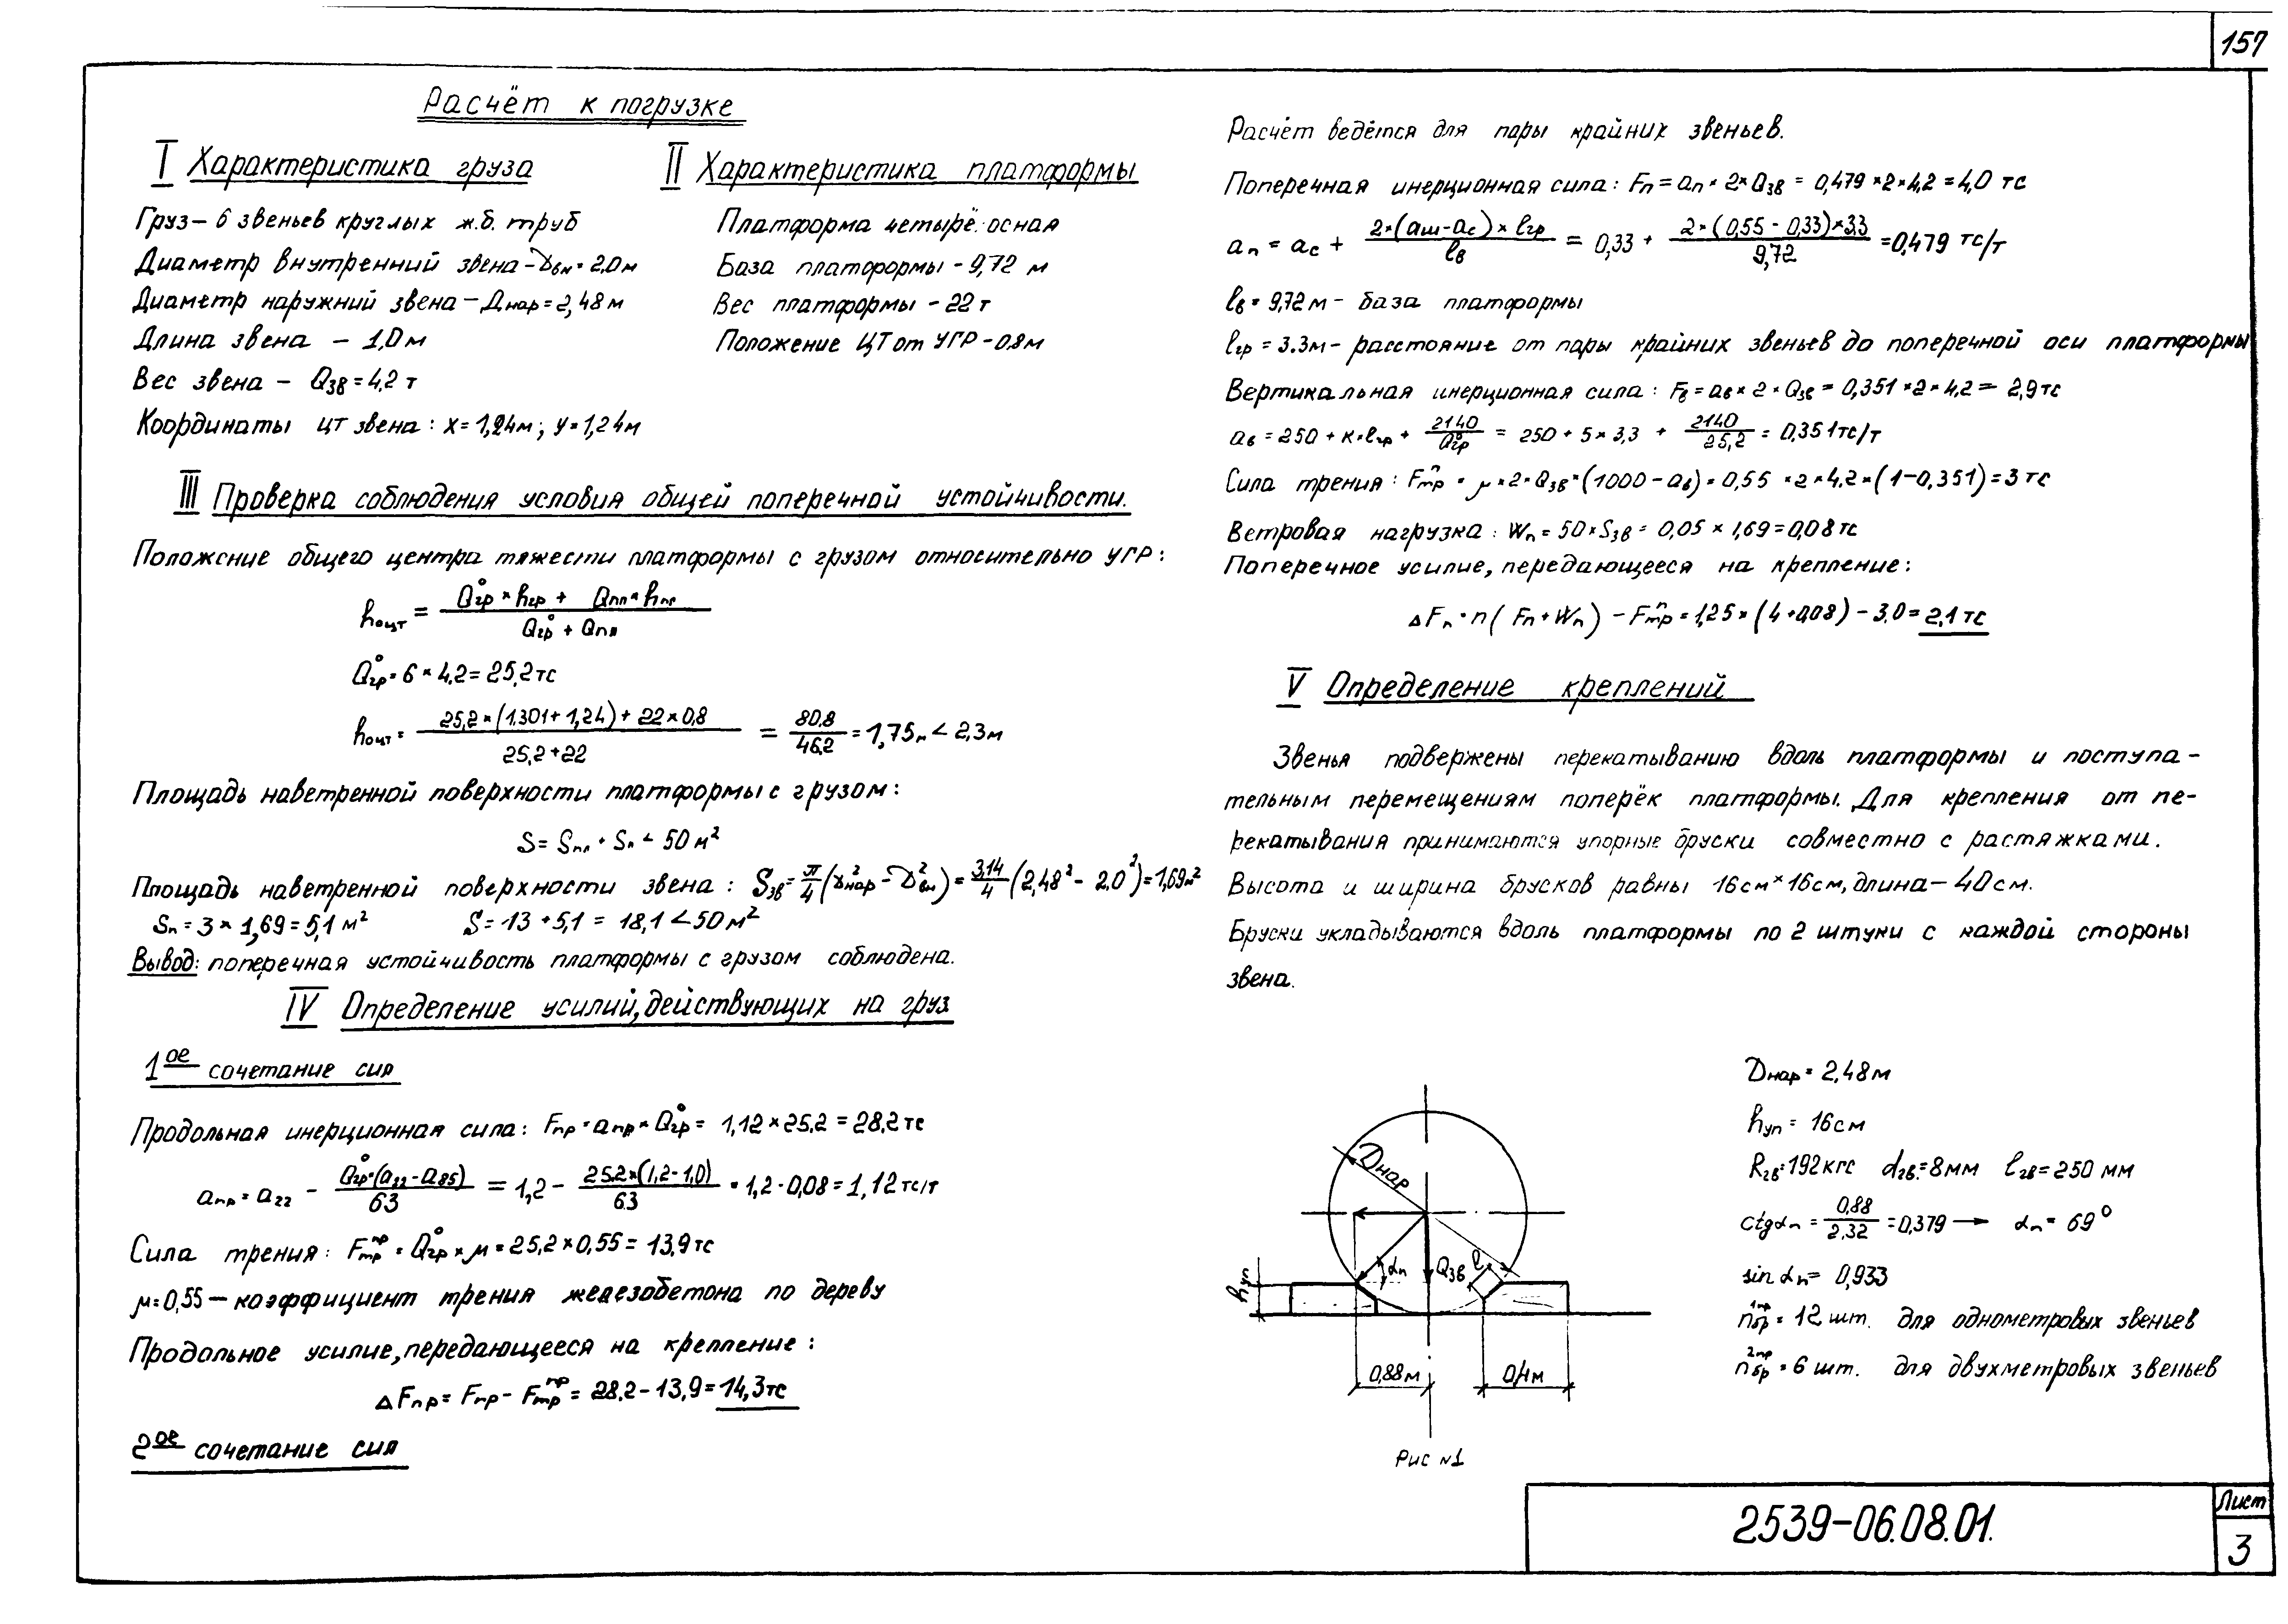 157
Расчёт к погрузке
I Характеристика груза
Груз – 6 звеньев круглых ж.б. труб
Диаметр внутренний звена – Dвн = 2.0 м
Диаметр наружний звена – Днар = 2,48 м
Длина звена – 1,0 м
Вес звена – Qзв = 4,2 т
Координаты цт звена : x = 1,24 м ; y = 1,24 м
II Характеристика платформы
Платформа четырё. осная
База платформы – 9,72 м
Вес платформы – 22 т
Положение ЦТ от УГР – 0.8 м
III Проверка соблюдения условия общей поперечной устойчивости.
Положение общего центра тяжести платформы с грузом относительно УГР :
hоцт = (Q°гр × hгр + Qпл × hпл) / (Q°гр + Qпл)
Q°гр = 6 × 4.2 = 25,2 тс
hоцт = (25,2 × (1.301 + 1,24) + 22 × 0,8) / (25,2 + 22) = 80,8 / 46,2 = 1,75 м < 2,3 м
Площадь наветренной поверхности платформы с грузом :
S = Sпл + Sп < 50 м²
Площадь наветренной поверхности звена : Sзв = π/4 (D²нар – D²вн) = 3,14/4 (2,48² – 2,0²) = 1,69 м²
Sп = 3 × 1,69 = 5,1 м² S = 13 + 5,1 = 18,1 < 50 м²
Вывод: поперечная устойчивость платформы с грузом соблюдена.
IV Определение усилий, действующих на груз
1ое сочетание сил
Продольная инерционная сила : Fпр = aпр × Q°гр = 1,12 × 25,2 = 28,2 тс
aпр = a22 – Q°гр × (a22 – a85) / 63 = 1,2 – 25.2 × (1,2 – 1,0) / 63 = 1,2 - 0,08 = 1,12 тс/т
Сила трения : Fтр^пр = Q°гр × μ = 25,2 × 0,55 = 13,9 тс
μ = 0,55 – коэффициент трения железобетона по дереву
Продольное усилие, передающееся на крепление :
ΔFпр = Fпр – Fтр^пр = 28,2 – 13,9 = 14,3 тс
2ое сочетание сил
Расчёт ведётся для пары крайних звеньев.
Поперечная инерционная сила : Fп = aп × 2 × Qзв = 0,479 × 2 × 4,2 = 4,0 тс
aп = aс + 2 × (aш – aс) × lгр / lв = 0,33 + 2 × (0,55 – 0,33) × 3.3 / 9,72 = 0,479 тс/т
lв = 9,72 м – база платформы
lгр = 3.3 м – расстояние от пары крайних звеньев до поперечной оси платформы
Вертикальная инерционная сила : Fв = aв × 2 × Qзв = 0,351 × 2 × 4,2 = 2,9 тс
aв = 250 + к × lгр + 2140 / Q°гр = 250 + 5 × 3,3 + 2140 / 25,2 = 0,351 тс/т
Сила трения : Fтр^п = μ × 2 × Qзв × (1000 – aв) = 0,55 × 2 × 4.2 × (1 – 0,351) = 3 тс
Ветровая нагрузка : Wп = 50 × Sзв = 0,05 × 1,69 = 0,08 тс
Поперечное усилие, передающееся на крепление :
ΔFп = n (Fп + Wп) – Fтр^п = 1,25 × (4 + 0,08) – 3.0 = 2,1 тс
V Определение креплений
Звенья подвержены перекатыванию вдоль платформы и поступа-
тельным перемещениям поперёк платформы. Для крепления от пе-
рекатывания принимаются упорные бруски совместно с растяжками.
Высота и ширина брусков равны 16 см × 16 см, длина – 40 см.
Бруски укладываются вдоль платформы по 2 штуки с каждой стороны
звена.
Днар
αп
Qзв
l
hуп
0,88 м
0,4 м
Рис №1
Днар = 2,48 м
hуп = 16 см
Rгв = 192 кгс dгв = 8 мм lгв = 250 мм
ctgαп = 0,88 / 2,32 = 0,379 → αп = 69°
sin αп = 0,933
nбр^1пр = 12 шт. для однометровых звеньев
nбр^2пр = 6 шт. для двухметровых звеньев
2539-06.08.01.
Лист
3